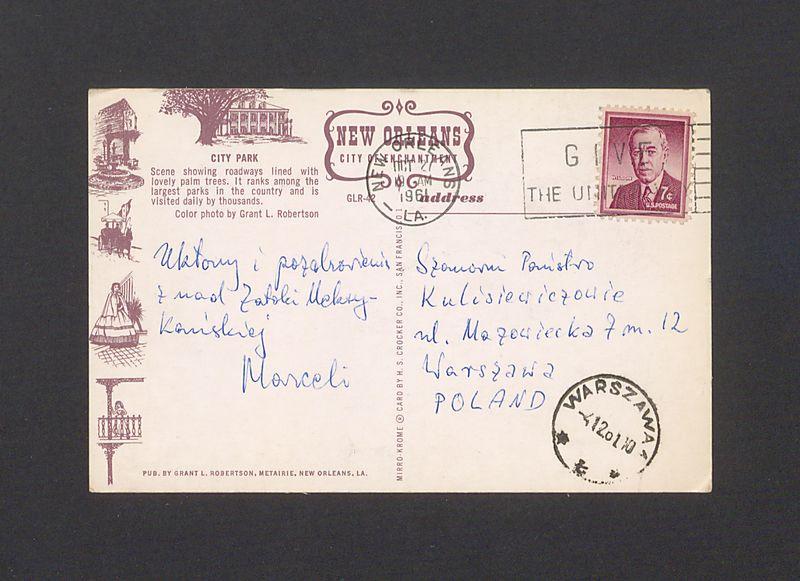 CITY PARK
Scene showing roadways lined with
lovely palm trees. It ranks among the
largest parks in the country and is
visited daily by thousands.
Color photo by Grant L. Robertson
NEW ORLEANS
CITY OF ENCHANTMENT
GLR-42
address
NEW ORLEANS
AM
1961
LA.
GIVE
THE UNITED
7¢
U.S. POSTAGE
Ukłony i pozdrowienia
z nad Zatoki Meksy-
kańskiej
Marceli
Szanowni Państwo
Kulisiewiczowie
ul. Mazowiecka 7 m. 12
Warszawa
POLAND
WARSZAWA
MIRRO-KROME ® CARD BY H. S. CROCKER CO., INC., SAN FRANCISCO 1
PUB. BY GRANT L. ROBERTSON, METAIRIE, NEW ORLEANS, LA.